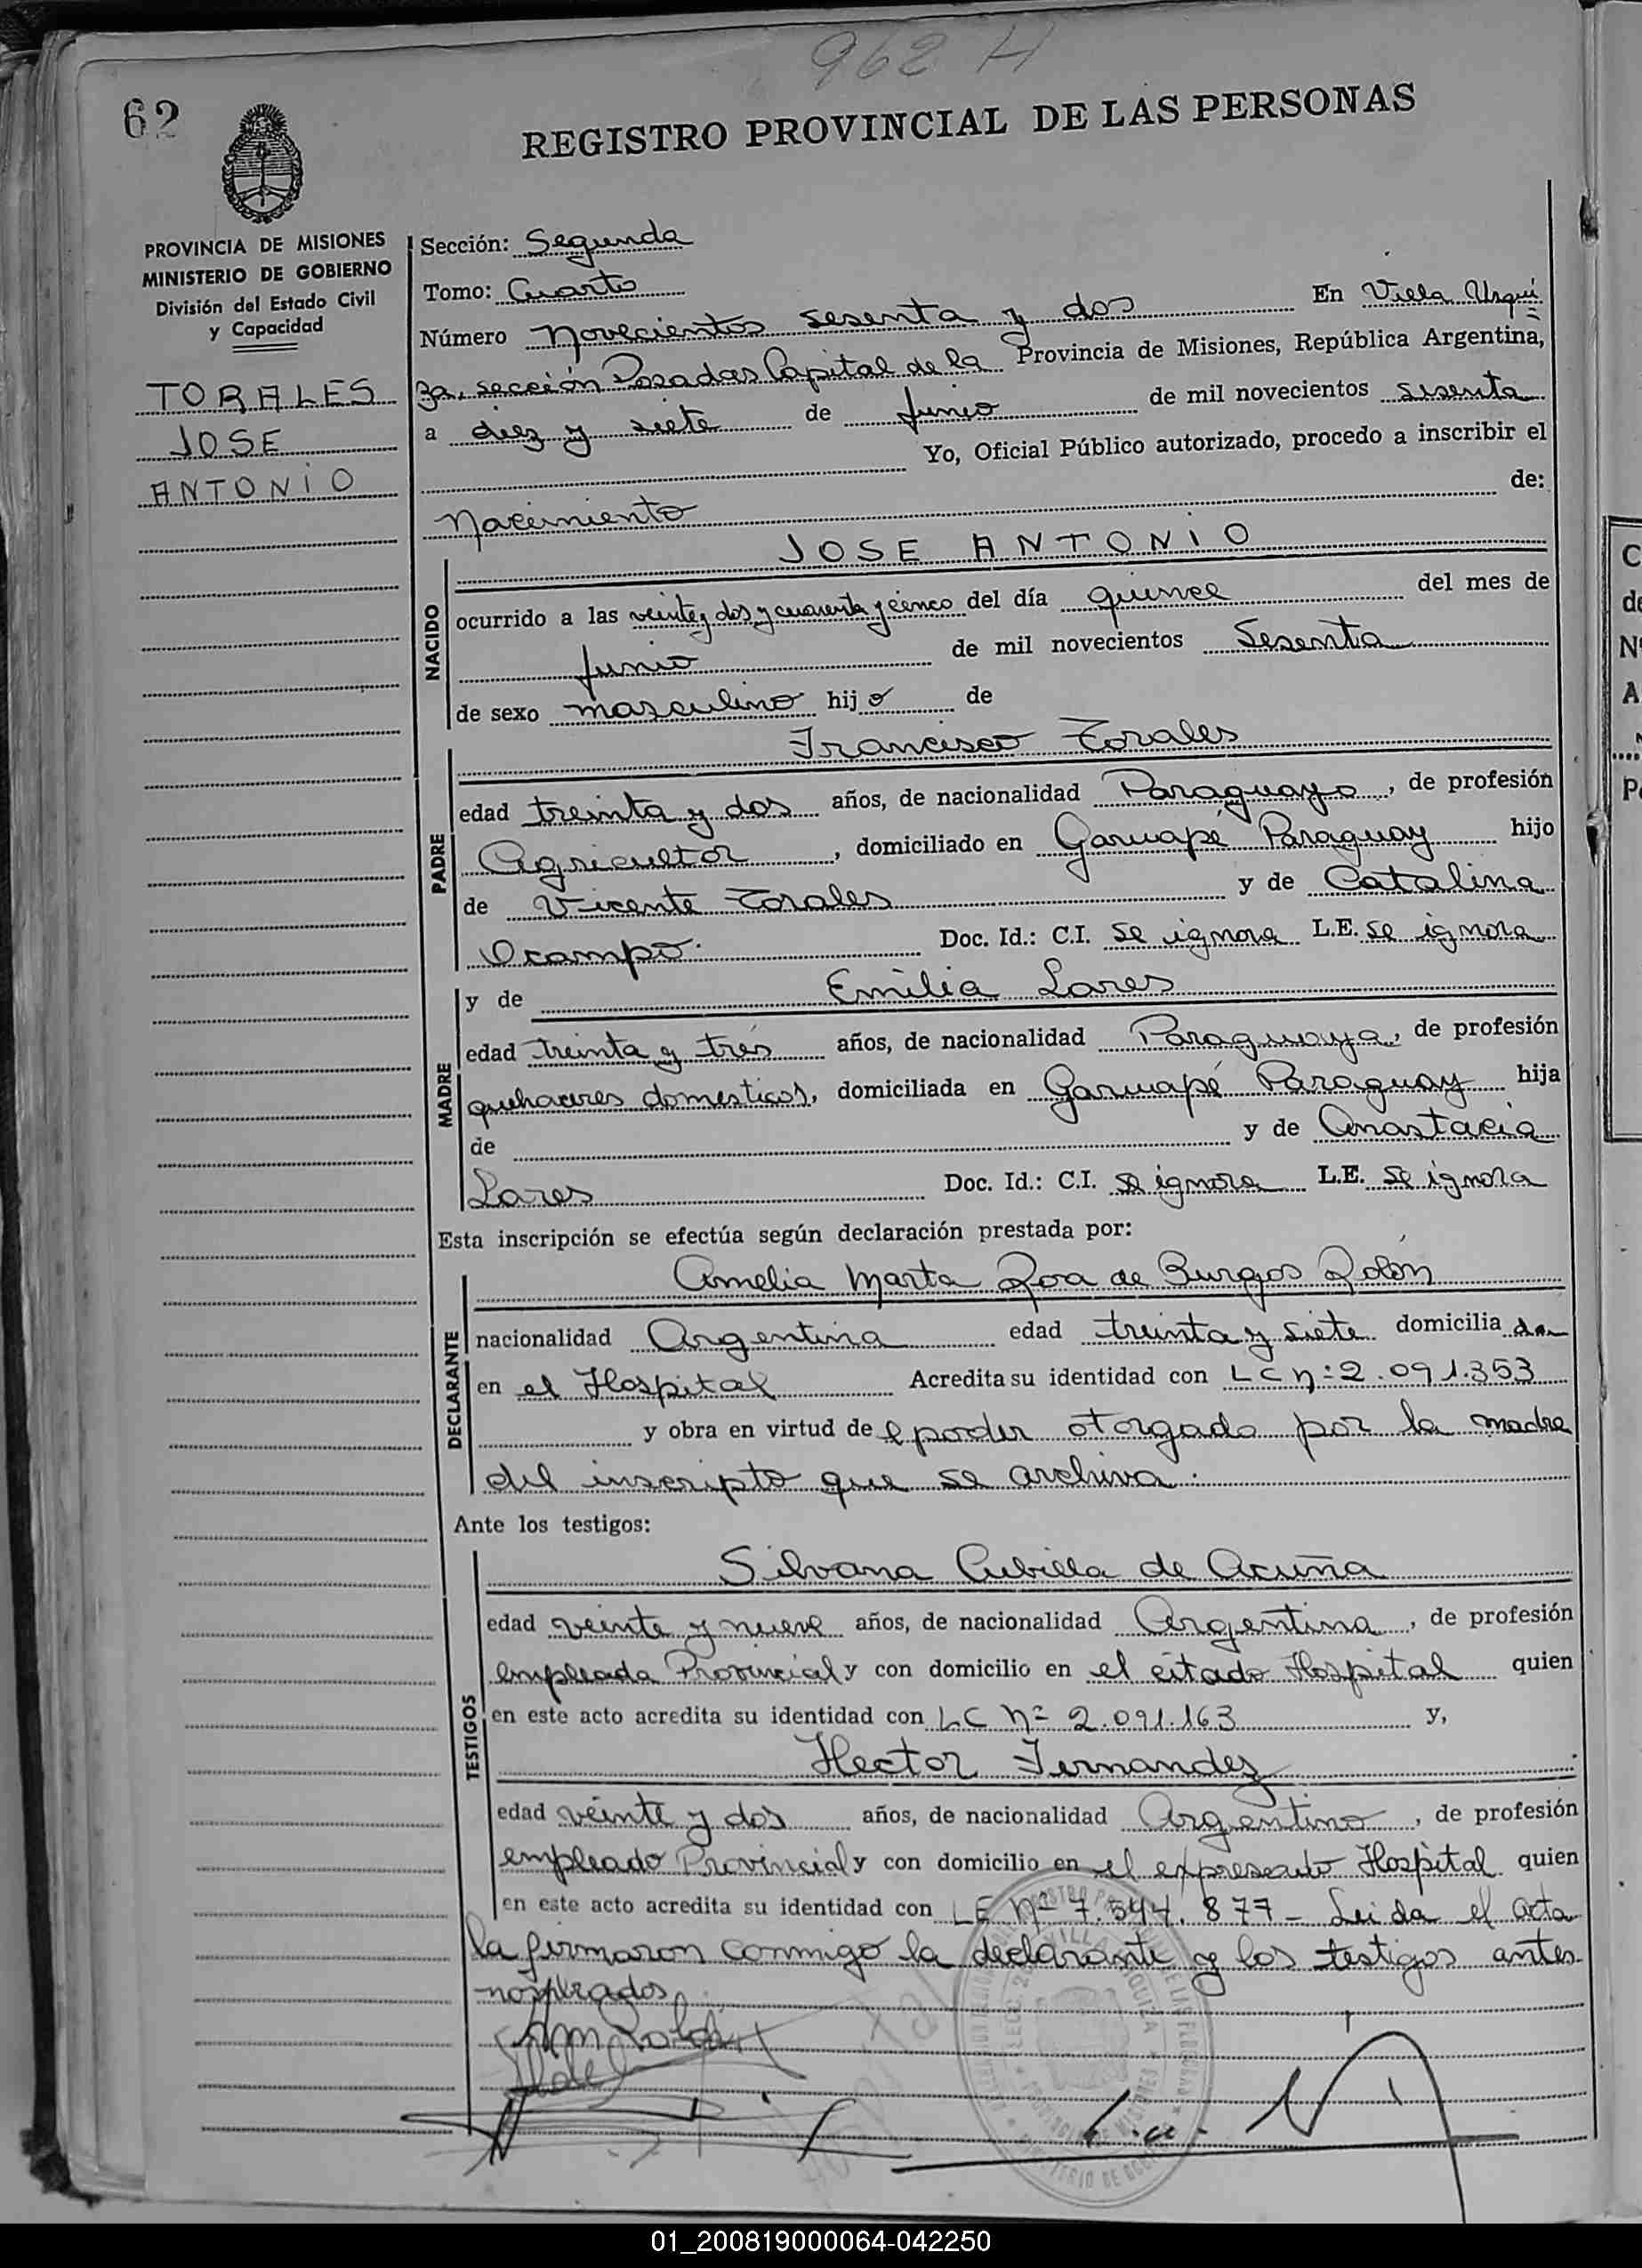 962 H
62
REGISTRO PROVINCIAL DE LAS PERSONAS
PROVINCIA DE MISIONES
MINISTERIO DE GOBIERNO
División del Estado Civil
y Capacidad
TORALES
JOSE
ANTONIO
Sección: Segunda
Tomo: Cuarto
Número novecientos sesenta y dos En Villa Urqui
za, sección Posadas Capital de la Provincia de Misiones, República Argentina,
a diez y siete de junio de mil novecientos sesenta
Yo, Oficial Público autorizado, procedo a inscribir el
Nacimiento de:
JOSE ANTONIO
NACIDO
ocurrido a las veinte y dos y cuarenta y cinco del día quince del mes de
junio de mil novecientos Sesenta
de sexo masculino hijo de
Francisco Torales
PADRE
edad treinta y dos años, de nacionalidad Paraguayo, de profesión
Agricultor, domiciliado en Garuapé Paraguay hijo
de Vicente Torales y de Catalina
Ocampo. Doc. Id.: C.I. se ignora L.E. se ignora
y de Emilia Lares
MADRE
edad treinta y tres años, de nacionalidad Paraguaya, de profesión
quehaceres domesticos, domiciliada en Garuapé Paraguay hija
de y de Anastacia
Lares Doc. Id.: C.I. se ignora L.E. se ignora
Esta inscripción se efectúa según declaración prestada por:
Amelia Marta Roa de Burgos Rolón
DECLARANTE
nacionalidad Argentina edad treinta y siete domiciliada
en el Hospital Acredita su identidad con LC n: 2.091.353
y obra en virtud del poder otorgado por la madre
del inscripto que se archiva.
Ante los testigos:
Silvana Cubilla de Acuña
TESTIGOS
edad veinte y nueve años, de nacionalidad Argentina, de profesión
empleada Provincial y con domicilio en el citado Hospital quien
en este acto acredita su identidad con LC Nº 2.091.163 y,
Hector Fernandez
edad veinte y dos años, de nacionalidad Argentino, de profesión
empleado Provincial y con domicilio en el expresado Hospital quien
en este acto acredita su identidad con LE Nº 7.544.877 - Leida el acta
la firmaron conmigo la declarante y los testigos antes
nombrados
01_200819000064-042250